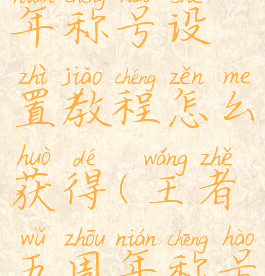 nián chēng hào shè
年称号设
zhì jiào chéng zěn me
置教程怎么
huò dé wáng zhě
获得(王者
wǔ zhōu nián chēng hào
五周年称号